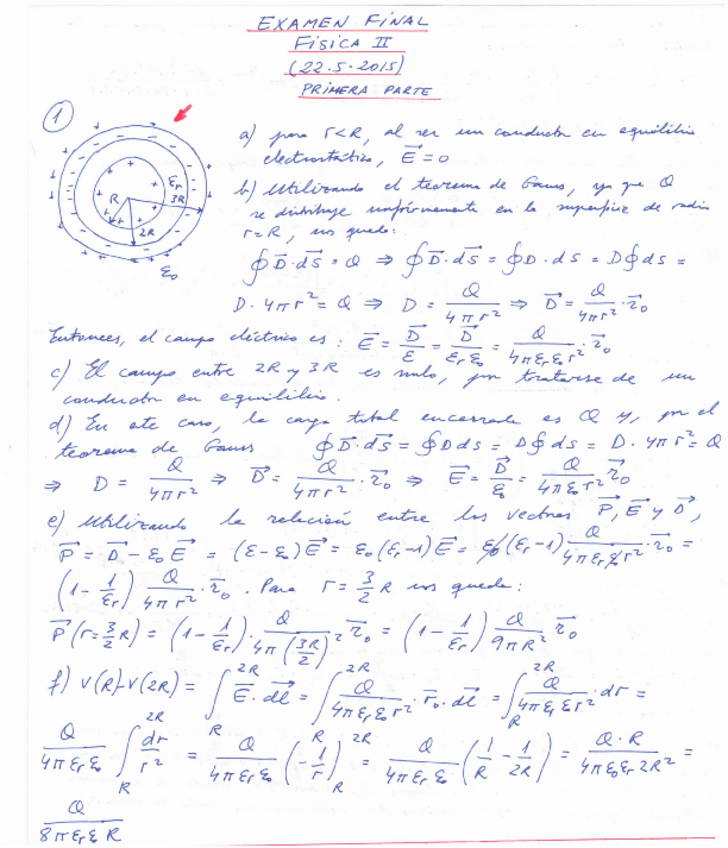 EXAMEN FINAL
FÍSICA II
(22·5·2015)
PRIMERA PARTE
1
a) para r<R, al ser un conductor en equilibrio
electrostático, \vec{E} = 0
εr
R
3R
2R
ε₀
b) Utilizando el teorema de Gauss, ya que Q
se distribuye uniformemente en la superficie de radio
r=R, nos queda:
∮\vec{D}·d\vec{S} = Q ⇒ ∮\vec{D}·d\vec{S} = ∮D·dS = D∮dS =
D·4πr² = Q ⇒ D = Q/(4πr²) ⇒ \vec{D} = Q/(4πr²)·\vec{r}₀
Entonces, el campo eléctrico es: \vec{E} = \vec{D}/ε = \vec{D}/(εr ε₀) = Q/(4πεr ε₀ r²)·\vec{r}₀
c) El campo entre 2R y 3R es nulo, por tratarse de un
conductor en equilibrio.
d) En este caso, la carga total encerrada es Q y, por el
teorema de Gauss ∮\vec{D}·d\vec{S} = ∮D dS = D∮dS = D·4πr² = Q
⇒ D = Q/(4πr²) ⇒ \vec{D} = Q/(4πr²)·\vec{r}₀ ⇒ \vec{E} = \vec{D}/ε₀ = Q/(4πε₀r²) \vec{r}₀
e) Utilizando la relación entre los vectores \vec{P}, \vec{E} y \vec{D},
\vec{P} = \vec{D} - ε₀\vec{E} = (ε-ε₀)\vec{E} = ε₀(εr-1)\vec{E} = ε₀(εr-1) Q/(4πεr ε₀ r²)·\vec{r}₀ =
(1 - 1/εr) Q/(4πr²)·\vec{r}₀. Para r = 3/2 R nos queda:
\vec{P}(r=3/2 R) = (1 - 1/εr)·Q/(4π(3R/2)²) \vec{r}₀ = (1 - 1/εr) Q/(9πR²) \vec{r}₀
f) V(R)-V(2R) = ∫_R^{2R} \vec{E}·d\vec{l} = ∫_R^{2R} Q/(4πεr ε₀ r²)·\vec{r}₀·d\vec{l} = ∫_R^{2R} Q/(4πεr ε₀ r²)·dr =
Q/(4πεr ε₀) ∫_R^{2R} dr/r² = Q/(4πεr ε₀) (-1/r)_R^{2R} = Q/(4πεr ε₀) (1/R - 1/2R) = Q·R/(4πε₀εr 2R²) =
Q/(8πεr ε₀ R)